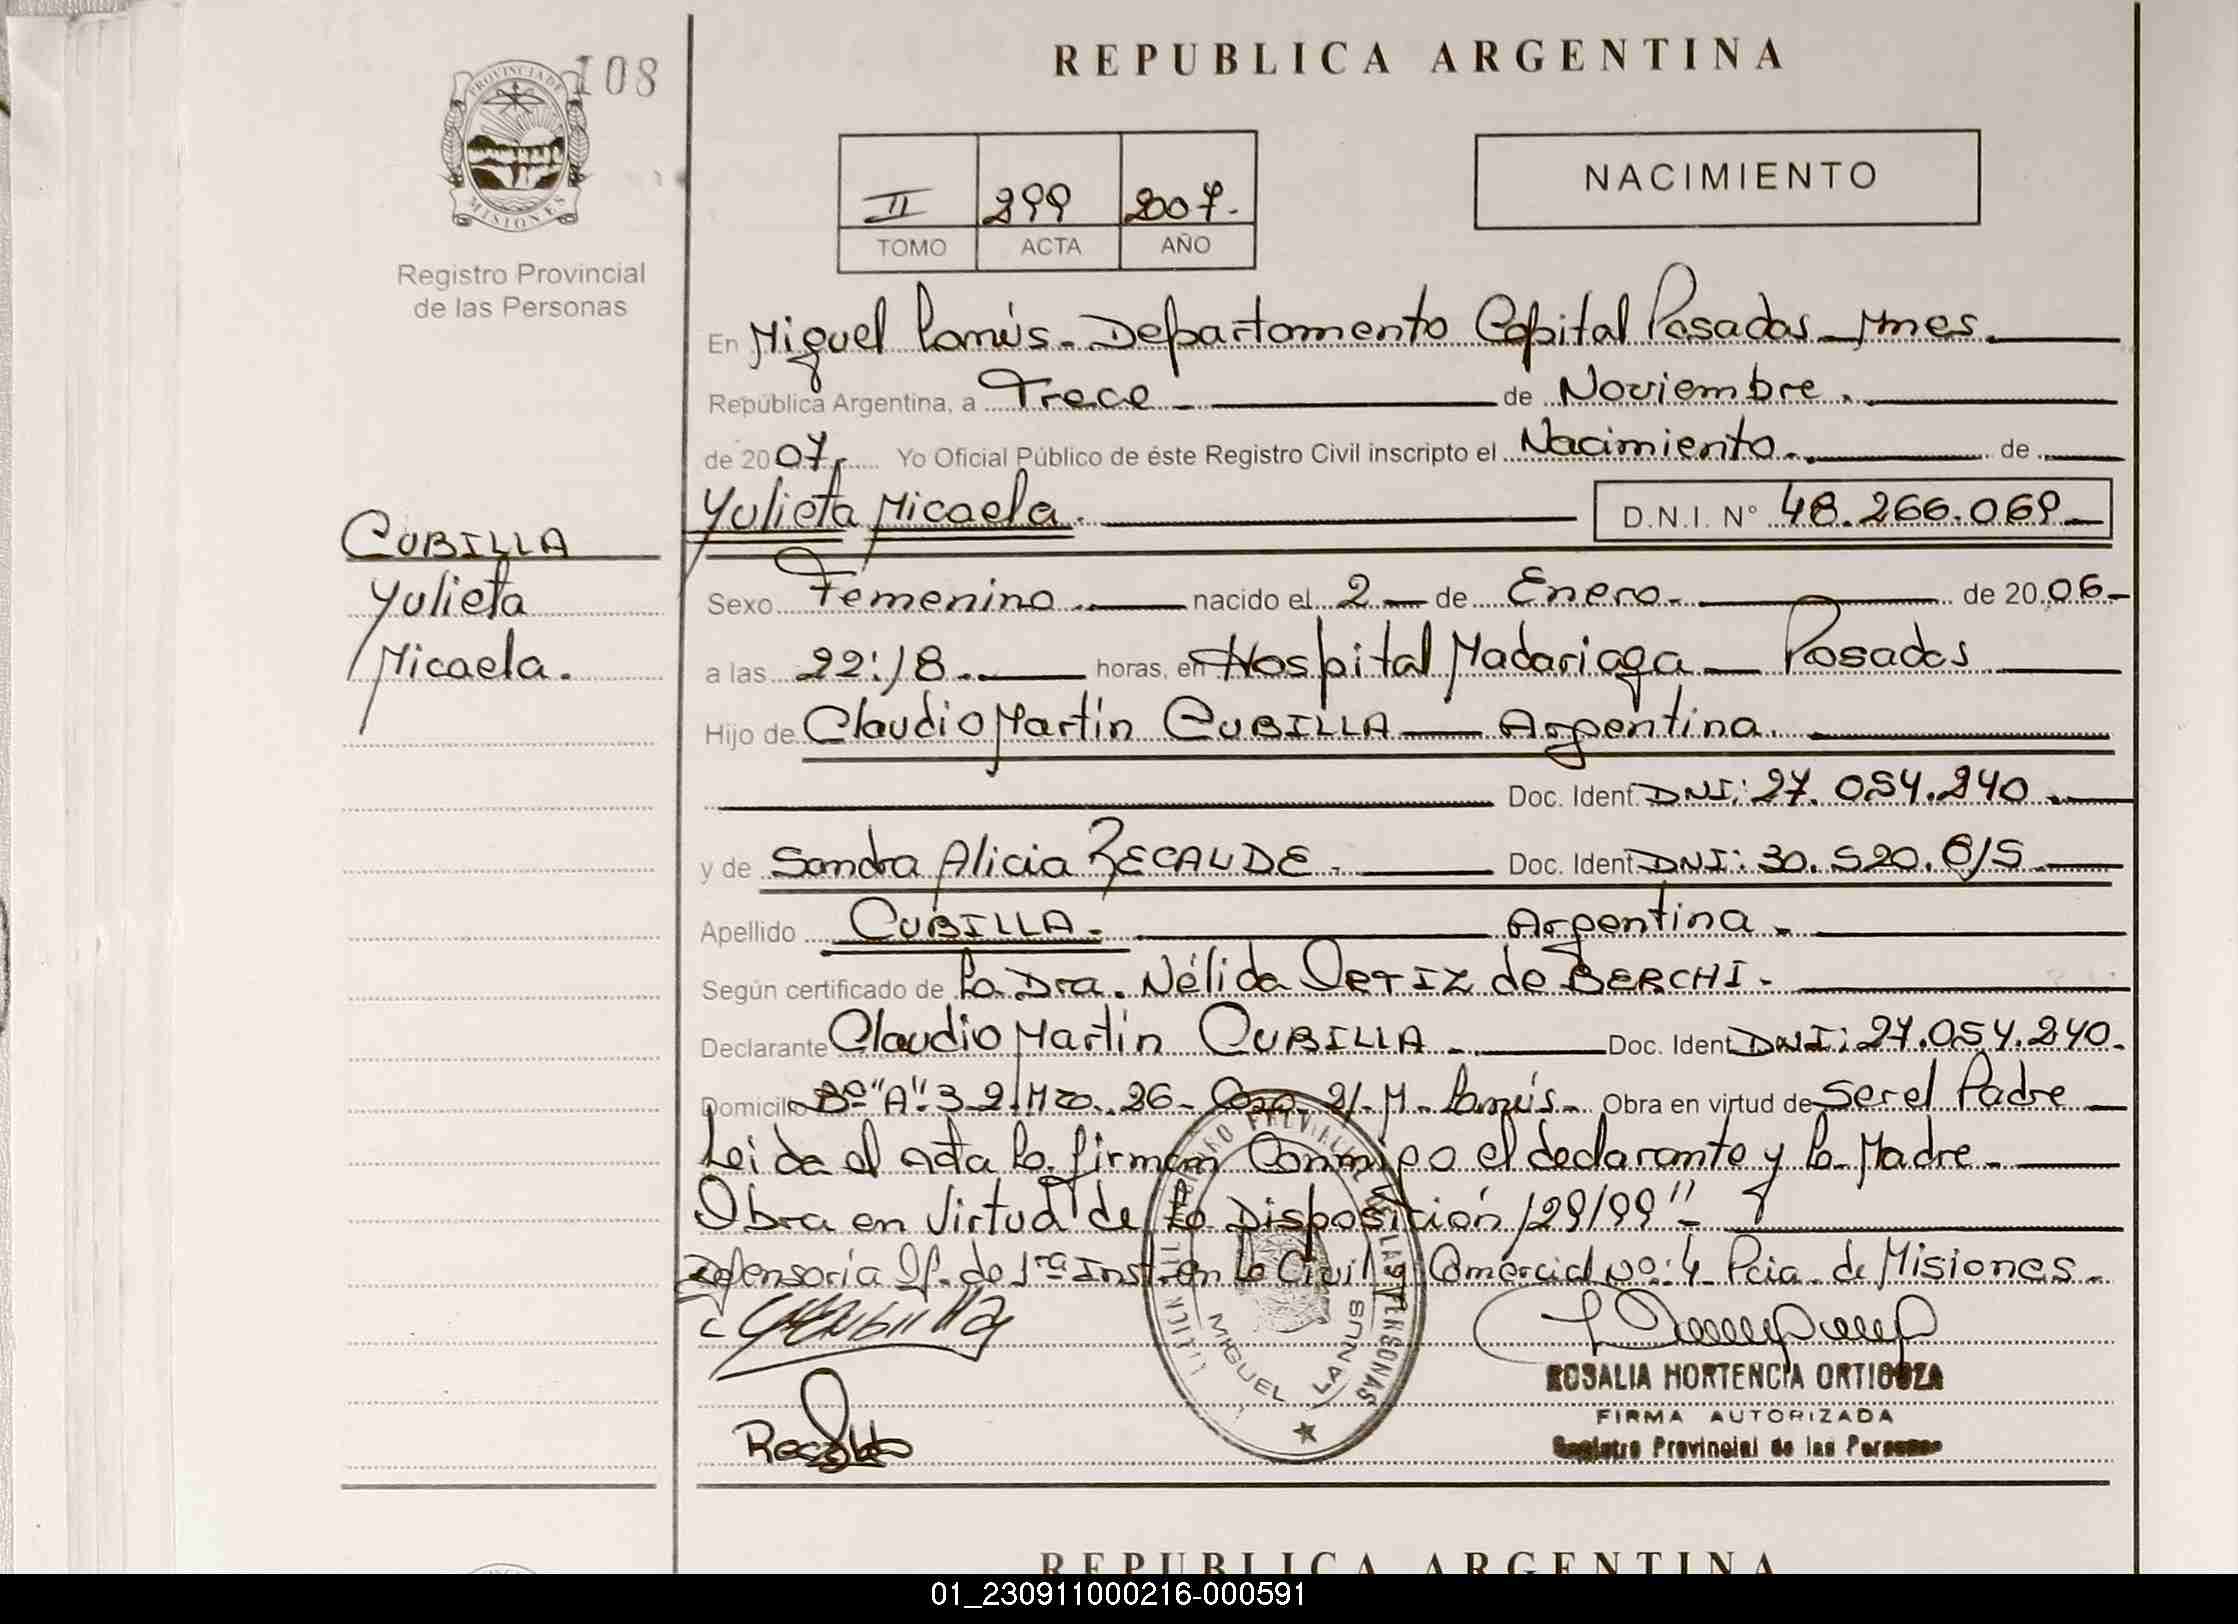 108
PROVINCIA DE
MISIONES
Registro Provincial
de las Personas
REPUBLICA ARGENTINA
II 299 2007.-
TOMO ACTA AÑO
NACIMIENTO
En Miguel Lanús - Departamento Capital Posadas - Mnes.
República Argentina, a Trece - de Noviembre.
de 2007.- Yo Oficial Público de éste Registro Civil inscripto el Nacimiento. de
Yulieta Micaela. D.N.I. N° 48.266.069
CUBILLA
Yulieta
Micaela.
Sexo Femenino. nacido el 2 de Enero. de 2006-
a las 22:18. horas, en Hospital Madariaga - Posadas
Hijo de Claudio Martín CUBILLA - Argentina.
Doc. Ident. DNI: 27.054.240
y de Sandra Alicia RECALDE. Doc. Ident. DNI: 30.520.615
Apellido CUBILLA. Argentina.
Según certificado de La Dra. Nélida ORTIZ de BERCHI.
Declarante Claudio Martín CUBILLA. Doc. Ident. DNI: 27.054.240.
Domicilio Bº "A" 3 2 Mza. 26 - Casa 21 - M. Lanús. Obra en virtud de Ser el Padre
Leída el acta la firman Conmigo el declarante y la Madre
Obra en Virtud de la Disposición 129/99"
Defensoría Of. de 1ra Inst. en lo Civil y Comercial Nº: 4 Pcia. de Misiones.
MIGUEL LANUS
ROSALIA HORTENCIA ORTIGOZA
FIRMA AUTORIZADA
Registro Provincial de las Personas
Recalde
REPUBLICA ARGENTINA
01_230911000216-000591